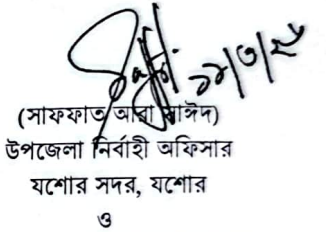 (সাফফাত আরা সাঈদ)
উপজেলা নির্বাহী অফিসার
যশোর সদর, যশোর
ও